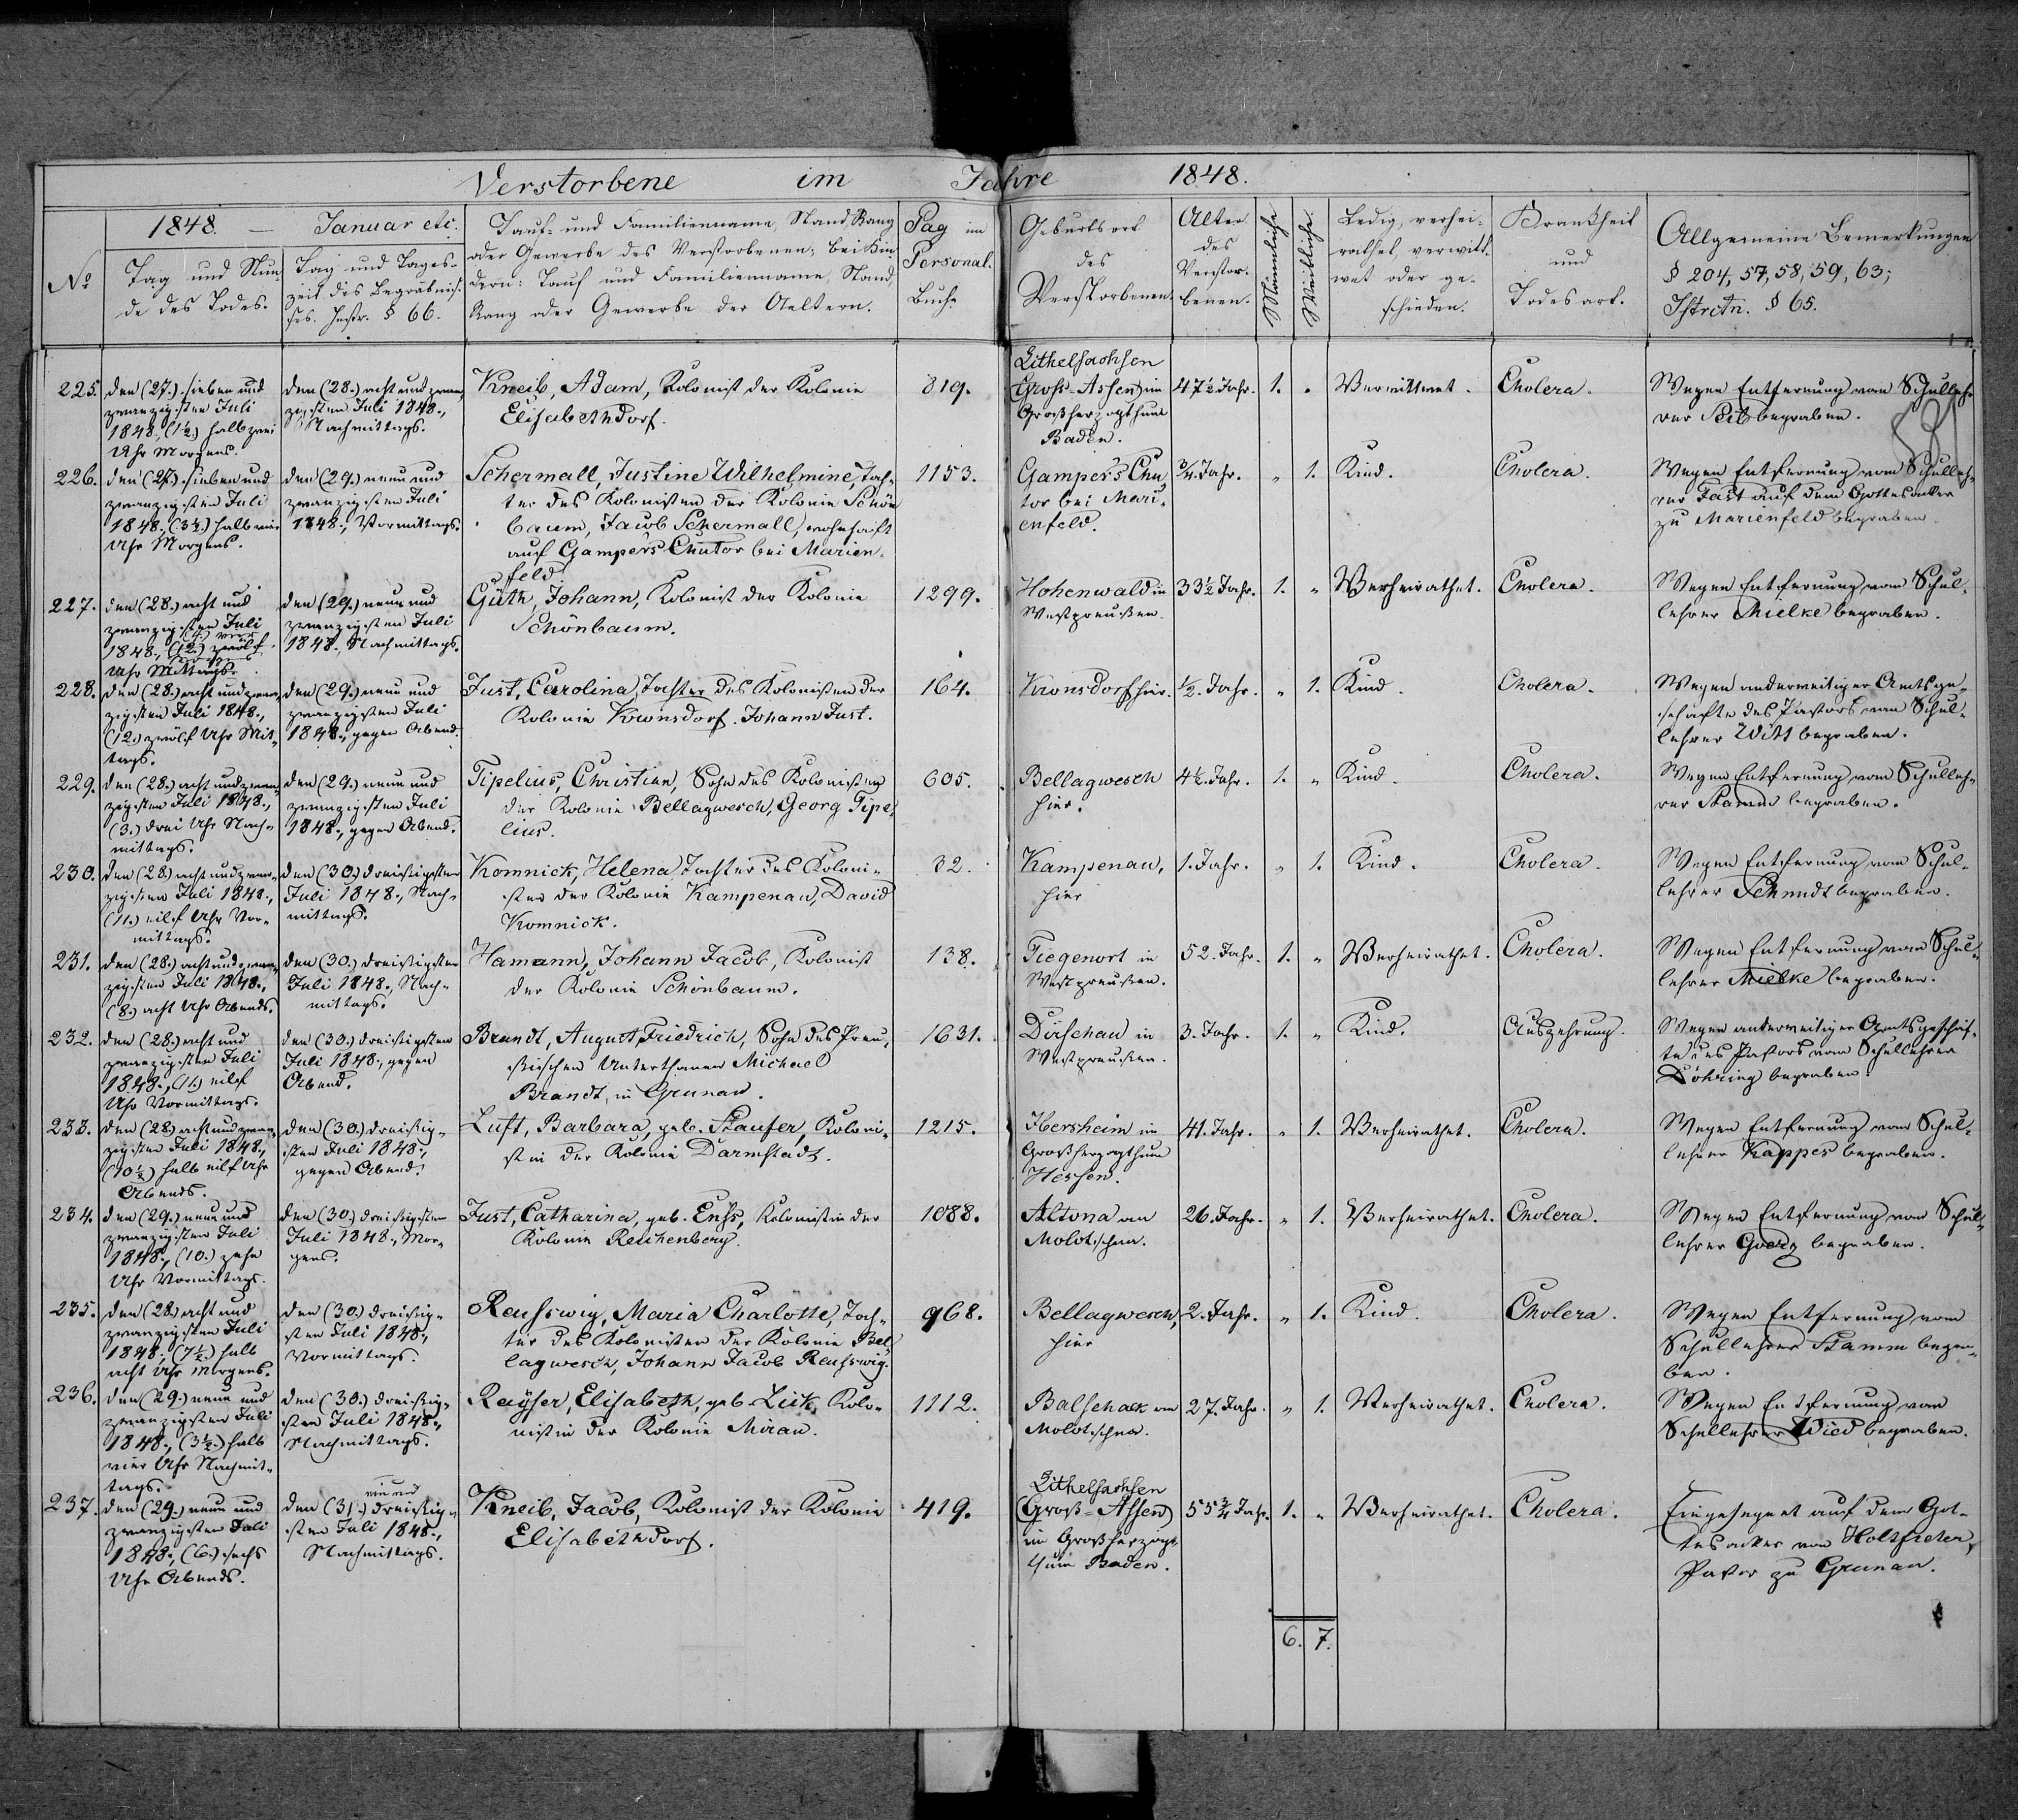 Verstorbene im Jahre 1848.
1848. — Januar etc.
No
Tag und Stun-
de des Todes.
Tag und Tages-
zeit des Begräbnis-
ses. Instr. § 66.
Tauf- und Familienname, Stand, Rang
oder Gewerbe des Verstorbenen; bei Kin-
dern: Tauf und Familienname, Stand,
Rang oder Gewerbe der Aeltern.
Pag im
Personal.
Buche
Geburtsort
des
Verstorbenen.
Alter
des
Verstor-
benen.
Männliche
Weibliche.
Ledig, verhei-
rathet, verwitt-
wet oder ge-
schieden.
Krankheit
und
Todesart.
Allgemeine Bemerkungen
§ 204, 57, 58, 59, 63;
Istrctn. § 65.
225.
den (27.) sieben und
zwanzigsten Juli
1848., (1½.) halb zwei
Uhr Morgens.
den (28.) acht und zwan-
zigsten Juli 1848.,
Nachmittags.
Kneib, Adam, Kolonist der Kolonie
Elisabethdorf.
819.
Lithelsachsen
(Gross-Assen) in
Großherzogthum
Baden.
47½ Jahr.
1.
"
Verwittwet.
Cholera.
Wegen Entfernung vom Schulleh-
rer Seib begraben.
226.
den (27.) sieben und
zwanzigsten Juli
1848., (3½.) halb vier
Uhr Morgens.
den (29.) neun und
zwanzigsten Juli
1848., Vormittags.
Schermall, Justine Wilhelmine, Toch-
ter des Kolonisten der Kolonie Schön-
baum, Jacob Schermall, wohnhaft
auf Gampers Chutor bei Marien-
feld.
1153.
Gamper's Chu-
tor bei Mari-
enfeld.
¾. Jahr.
"
1.
Kind.
Cholera.
Wegen Entfernung vom Schulleh-
rer Fast auf dem Gottesacker
zu Marienfeld begraben.
227.
den (28.) acht und
zwanzigsten Juli
(4.) vier
1848., (12.) zwölf
Uhr Mittags.
den (29.) neun und
zwanzigsten Juli
1848., Nachmittags.
Güth, Johann, Kolonist der Kolonie
Schönbaum.
1299.
Hohenwald in
Westpreußen.
33½ Jahr.
1.
"
Verheirathet.
Cholera.
Wegen Entfernung vom Schul-
lehrer Mielke begraben.
228.
den (28.) acht und zwan-
zigsten Juli 1848.,
(12.) zwölf Uhr Mit-
tags.
den (29.) neun und
zwanzigsten Juli
1848., gegen Abend.
Just, Carolina, Tochter des Kolonisten der
Kolonie Kronsdorf. Johann Just.
164.
Kronsdorf hier.
½. Jahr.
"
1.
Kind.
Cholera.
Wegen anderweitiger Amtsge-
schäfte des Pastors vom Schul-
lehrer Witt begraben.
229.
den (28.) acht und zwan-
zigsten Juli 1848.,
(3.) drei Uhr Nach-
mittags.
den (29.) neun und
zwanzigsten Juli
1848., gegen Abend.
Tipelius, Christian, Sohn des Kolonisten
der Kolonie Bellagwesch, Georg Tipe-
lius.
605.
Bellagwesch
hier.
4½. Jahr.
1.
"
Kind.
Cholera.
Wegen Entfernung vom Schulleh-
rer Stamm begraben.
230.
den (28.) acht und zwan-
zigsten Juli 1848.,
(11.) eilf Uhr Vor-
mittags.
den (30.) dreißigsten
Juli 1848., Nach-
mittags.
Komnick, Helena Tochter des Koloni-
sten der Kolonie Kampenau, David
Komnick.
32.
Kampenau,
hier
1. Jahr.
"
1.
Kind.
Cholera.
Wegen Entfernung vom Schul-
lehrer Schmidt begraben.
231.
den (28.) acht und zwan-
zigsten Juli 1848.,
(8.) acht Uhr Abends.
den (30.) dreißigsten
Juli 1848., Nach-
mittags.
Hamann, Johann Jacob, Kolonist
der Kolonie Schönbaum.
138.
Tiegenort in
Westpreußen.
52. Jahr.
1.
"
Verheirathet.
Cholera.
Wegen Entfernung vom Schul-
lehrer Mielke begraben.
232.
den (28.) acht und
zwanzigsten Juli
1848., (11.) eilf
Uhr Vormittags.
den (30.) dreißigsten
Juli 1848., gegen
Abend.
Brandt, August Friedrich, Sohn des Preu-
ßischen Unterthanen Michael
Brandt, in Grunau.
1631.
Dirschau in
Westpreußen.
3. Jahr.
1.
"
Kind.
Auszehrung.
Wegen anderweitiger Amtsgeschäf-
te des Pastors vom Schullehrer
Döhring begraben.
233.
den (28.) acht und zwan-
zigsten Juli 1848.,
(10½.) halb eilf Uhr
Abends.
den (30.) dreißig-
sten Juli 1848.,
gegen Abend.
Luft, Barbara, geb. Staufer, Koloni-
stin der Kolonie Darmstadt.
1215.
Ibersheim in
Großherzogthum
Hessen.
41. Jahr.
"
1.
Verheirathet.
Cholera.
Wegen Entfernung vom Schul-
lehrer Kappes begraben.
234.
den (29.) neun und
zwanzigsten Juli
1848., (10.) zehn
Uhr Vormittags.
den (30.) dreißigsten
Juli 1848., Mor-
gens.
Just, Catharina, geb. Enss, Kolonistin der
Kolonie Reichenberg.
1088.
Altona an
Molotschna.
26. Jahr.
"
1.
Verheirathet.
Cholera.
Wegen Entfernung vom Schul-
lehrer Goerz begraben.
235.
den (28.) acht und
zwanzigsten Juli
1848., (7½.) halb
acht Uhr Morgens.
den (30.) dreißig-
sten Juli 1848.,
Vormittags.
Reusswig, Maria Charlotte, Toch-
ter des Kolonisten der Kolonie Bel-
lagwesch, Johann Jacob Reusswig.
968.
Bellagwesch,
hier
2. Jahr.
"
1.
Kind.
Cholera.
Wegen Entfernung vom
Schullehrer Stamm begra-
ben.
236.
den (29.) neun und
zwanzigsten Juli
1848., (3½.) halb
vier Uhr Nachmit-
tags.
den (30.) dreißig-
sten Juli 1848.,
Nachmittags.
Rayser, Elisabeth, geb. Lick, Kolo-
nistin der Kolonie Mirau.
1112.
Balschack an
Molotschna.
27. Jahr.
"
1.
Verheirathet.
Cholera.
Wegen Entfernung vom
Schullehrer Wied begraben.
237.
den (29.) neun und
zwanzigsten Juli
1848., (6.) sechs
Uhr Abends.
ein und
den (31.) dreißig-
sten Juli 1848.,
Nachmittags.
Kneib, Jacob, Kolonist der Kolonie
Elisabethdorf.
419.
Lithelsachsen
(Gross-Assen)
im Großherzog-
thum Baden.
55¾ Jahr.
1.
"
Verheirathet.
Cholera.
Eingesegnet auf dem Got-
tesacker von Holtfreter,
Pastor zu Grunau.
6. 7.